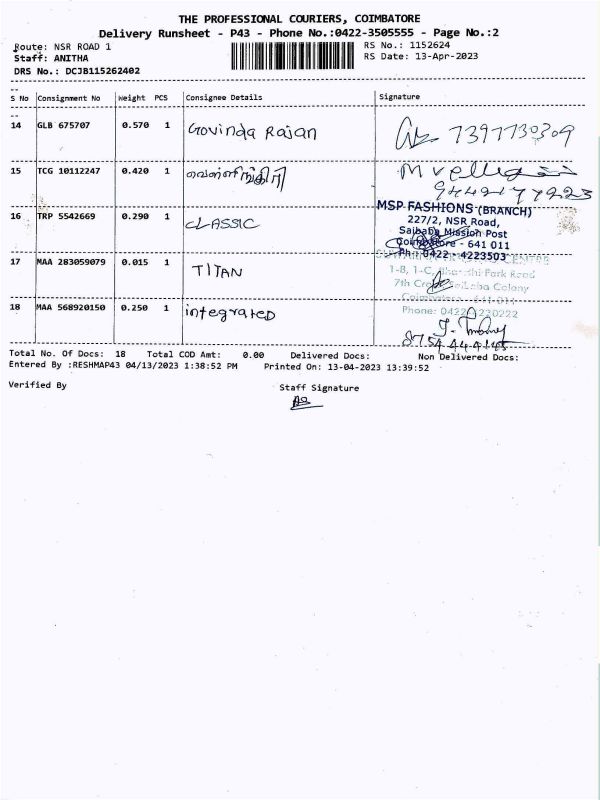 THE PROFESSIONAL COURIERS, COIMBATORE
Delivery Runsheet - P43 - Phone No.:0422-3505555 - Page No.:2
Route: NSR ROAD 1 RS No.: 1152624
Staff: ANITHA RS Date: 13-Apr-2023
DRS No.: DCJB115262402
S No Consignment No Weight PCS Consignee Details Signature
14 GLB 675707 0.570 1 Govinda Rajan 7397730309
15 TCG 10112247 0.420 1
16 TRP 5542669 0.290 1 CLASSIC
MSP FASHIONS (BRANCH)
227/2, NSR Road,
Saibaba Mission Post
Coimbatore - 641 011
Ph : 0422 - 4223503
17 MAA 283059079 0.015 1 TITAN
1-8, 1-C, Bharathi Park Road
7th Cross, SaiBaba Colony
Coimbatore - 641 011
Phone: 0422
18 MAA 568920150 0.250 1 integrated
Total No. Of Docs: 18 Total COD Amt: 0.00 Delivered Docs: Non Delivered Docs:
Entered By :RESHMAP43 04/13/2023 1:38:52 PM Printed On: 13-04-2023 13:39:52
Verified By Staff Signature